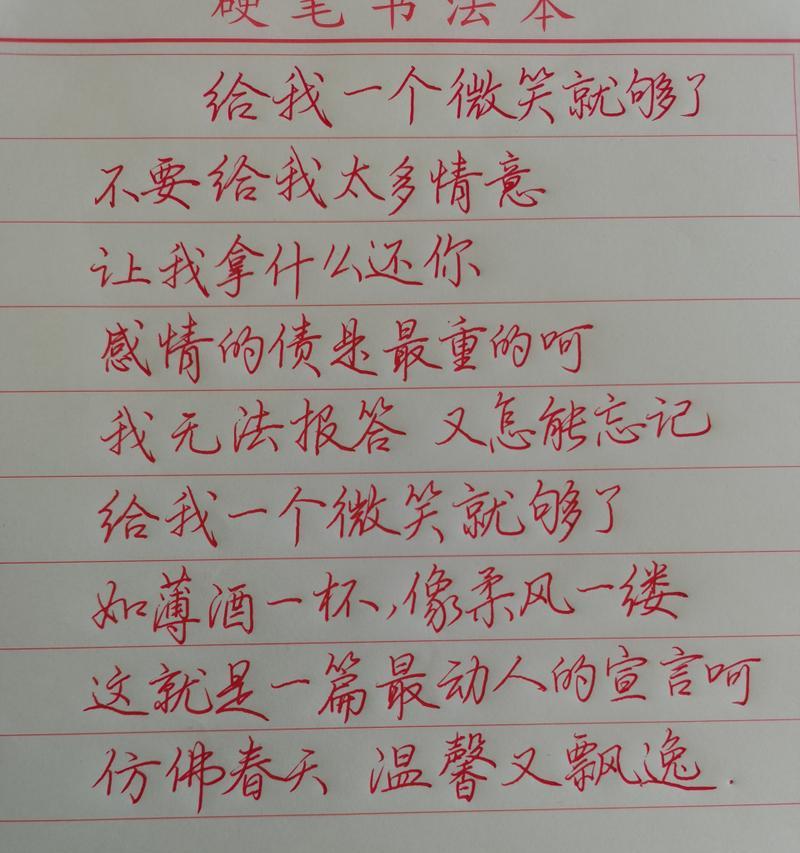 硬笔书法本
给我一个微笑就够了
不要给我太多情意
让我拿什么还你
感情的债是最重的呵
我无法报答 又怎能忘记
给我一个微笑就够了
如薄酒一杯,像柔风一缕
这就是一篇最动人的宣言呵
仿佛春天 温馨又飘逸.